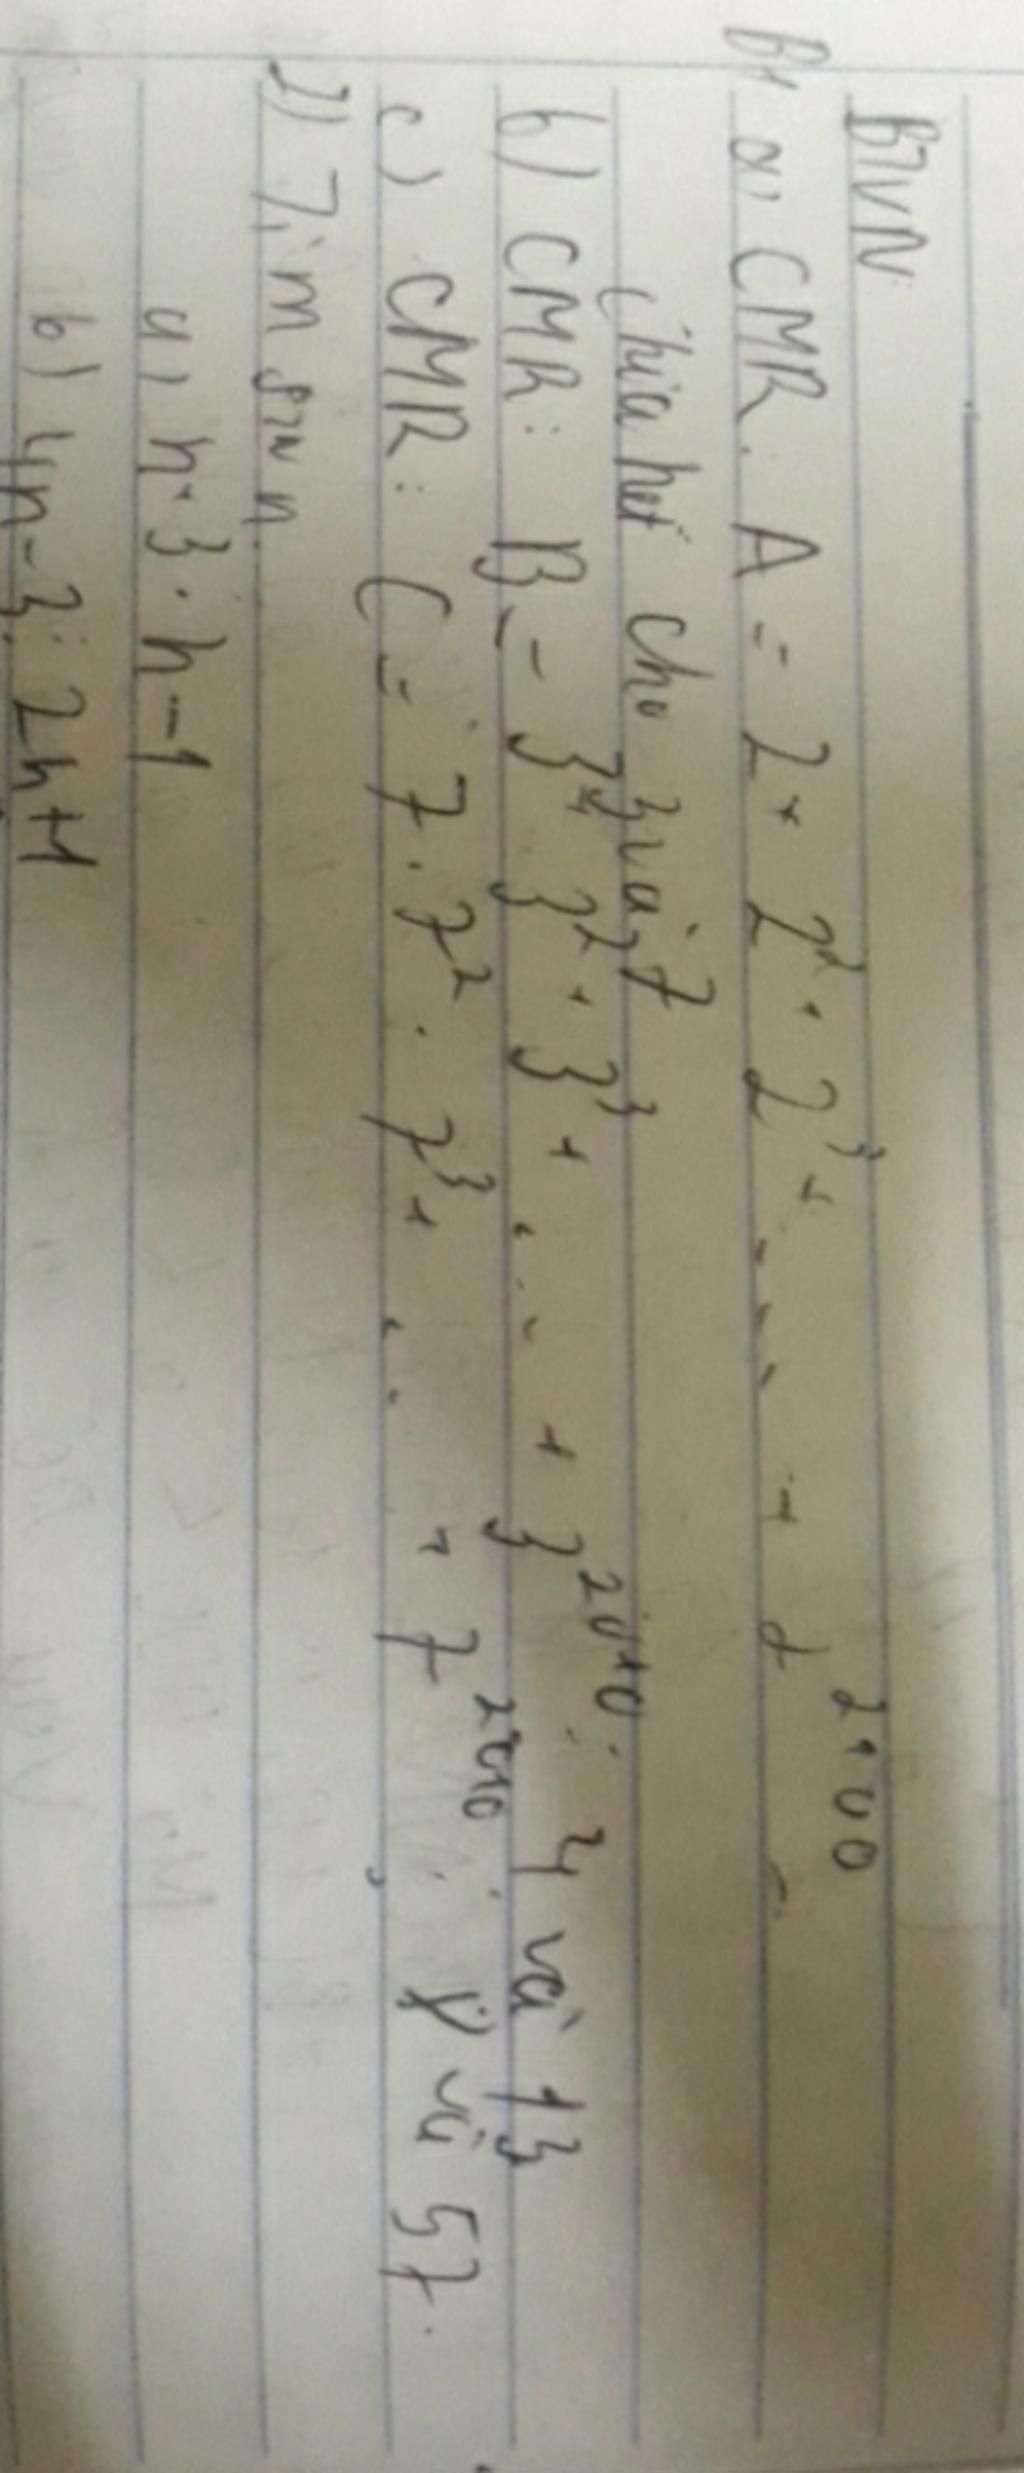 BTVN
B1 a, CMR. A = 2 + 2² + 2³ + .... + 2²¹⁰⁰
Chia hết cho 3 và 7
b) CMR: B = 3¹ + 3² + 3³ + ... + 3²⁰¹⁰ ⋮ 4 và 13
c) CMR: C = 7 + 7² + 7³ + ... + 7²⁰¹⁰ ⋮ 8 và 57.
2) Tìm STN n.
a) n+3 ⋮ n-1
b) 4n-3 ⋮ 2n+1